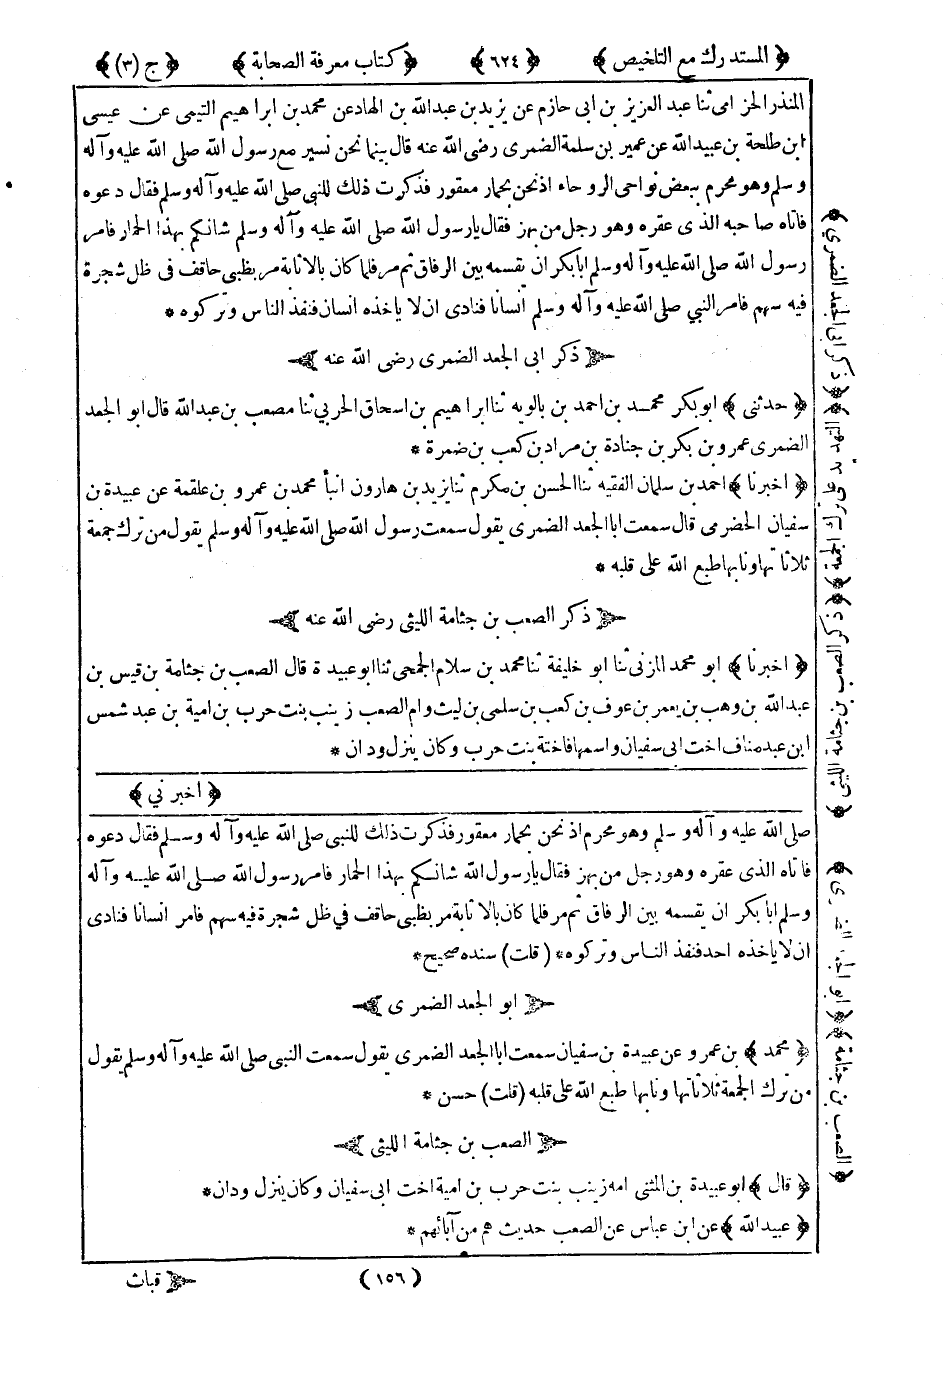 ﴿ المستدرك مع التلخيص ﴾ ﴿ ٦٢٤ ﴾ ﴿ كتاب معرفة الصحابة ﴾ ﴿ ج (٣) ﴾
المنذر الحزامى ثنا عبد العزيز بن ابى حازم عن يزيد بن عبدالله بن الهاد عن محمد بن ابراهيم التيمى عن عيسى
ابن طلحة بن عبيدالله عن عمير بن سلمة الضمرى رضى الله عنه قال بينما نحن نسير مع رسول الله صلى الله عليه وآله
وسلم وهو محرم ببعض نواحى الروحاء اذ نحن بحمار معقور فذكرت ذلك للنبى صلى الله عليه وآله وسلم فقال دعوه
فاتاه صاحبه الذى عقره وهو رجل من بهز فقال يا رسول الله صلى الله عليه وآله وسلم شانكم بهذا الحمار فامر
رسول الله صلى الله عليه وآله وسلم ابا بكر ان نقسمه بين الرفاق ثم مر فلما كان بالاثابة مر بظبى حاقف فى ظل شجرة
فيه سهم فامر النبي صلى الله عليه وآله وسلم انسانا فنادى ان لا ياخذه انسان فنفذ الناس وتركوه *
ذكر ابى الجعد الضمرى رضى الله عنه
﴿ حدثنى ﴾ ابو بكر محمد بن احمد بن بالويه ثنا ابراهيم بن اسحاق الحربي ثنا مصعب بن عبدالله قال ابو الجعد
الضمرى عمرو بن بكر بن جنادة بن مراد بن كعب بن ضمرة *
﴿ اخبرنا ﴾ احمد بن سلمان الفقيه ثنا الحسن بن مكرم ثنا يزيد بن هارون انبأ محمد بن عمرو بن علقمة عن عبيدة بن
سفيان الحضرمى قال سمعت ابا الجعد الضمرى يقول سمعت رسول الله صلى الله عليه وآله وسلم يقول من ترك جمعة
ثلاثا تهاونا بها طبع الله على قلبه *
ذكر الصعب بن جثامة الليثى رضى الله عنه
﴿ اخبرنا ﴾ ابو محمد المزنى ثنا ابو خليفة ثنا محمد بن سلام الجمحى ثنا ابو عبيدة قال الصعب بن جثامة بن قيس بن
عبدالله بن وهب بن يعمر بن عوف بن كعب بن سلمى بن ليث وام الصعب زينب بنت حرب بن امية بن عبد شمس
ابن عبد مناف اخت ابى سفيان واسمها فاختة بنت حرب وكان ينزل ودان *
﴿ اخبرني ﴾
صلى الله عليه وآله وسلم وهو محرم اذ نحن بحمار معقور فذكرت ذلك للنبى صلى الله عليه وآله وسلم فقال دعوه
فاتاه الذى عقره وهو رجل من بهز فقال يا رسول الله شانكم بهذا الحمار فامر رسول الله صلى الله عليه وآله
وسلم ابا بكر ان يقسمه بين الرفاق ثم مر فلما كان بالاثابة مر بظبى حاقف في ظل شجرة فيه سهم فامر انسانا فنادى
ان لا ياخذه احد فنفذ الناس وتركوه * (قلت) سنده صحيح *
ابو الجعد الضمرى
﴿ محمد ﴾ بن عمرو عن عبيدة بن سفيان سمعت ابا الجعد الضمرى يقول سمعت النبى صلى الله عليه وآله وسلم يقول
من ترك الجمعة ثلاثا تهاونا بها طبع الله على قلبه (قلت) حسن *
الصعب بن جثامة الليثى
﴿ قال ﴾ ابو عبيدة بن المثنى امه زينب بنت حرب بن امية اخت ابى سفيان وكان ينزل ودان *
﴿ عبيدالله ﴾ عن ابن عباس عن الصعب حديث هم من آبائهم *
(١٥٦)
قباث
﴿ ذكر ابى الجعد الضمرى ﴾
ترك الجمعة ﴾
﴿ ذكر الصعب بن جثامة الليثى ﴾
﴿ ابو الجعد الضمرى ﴾
﴿ الصعب بن جثامة ﴾